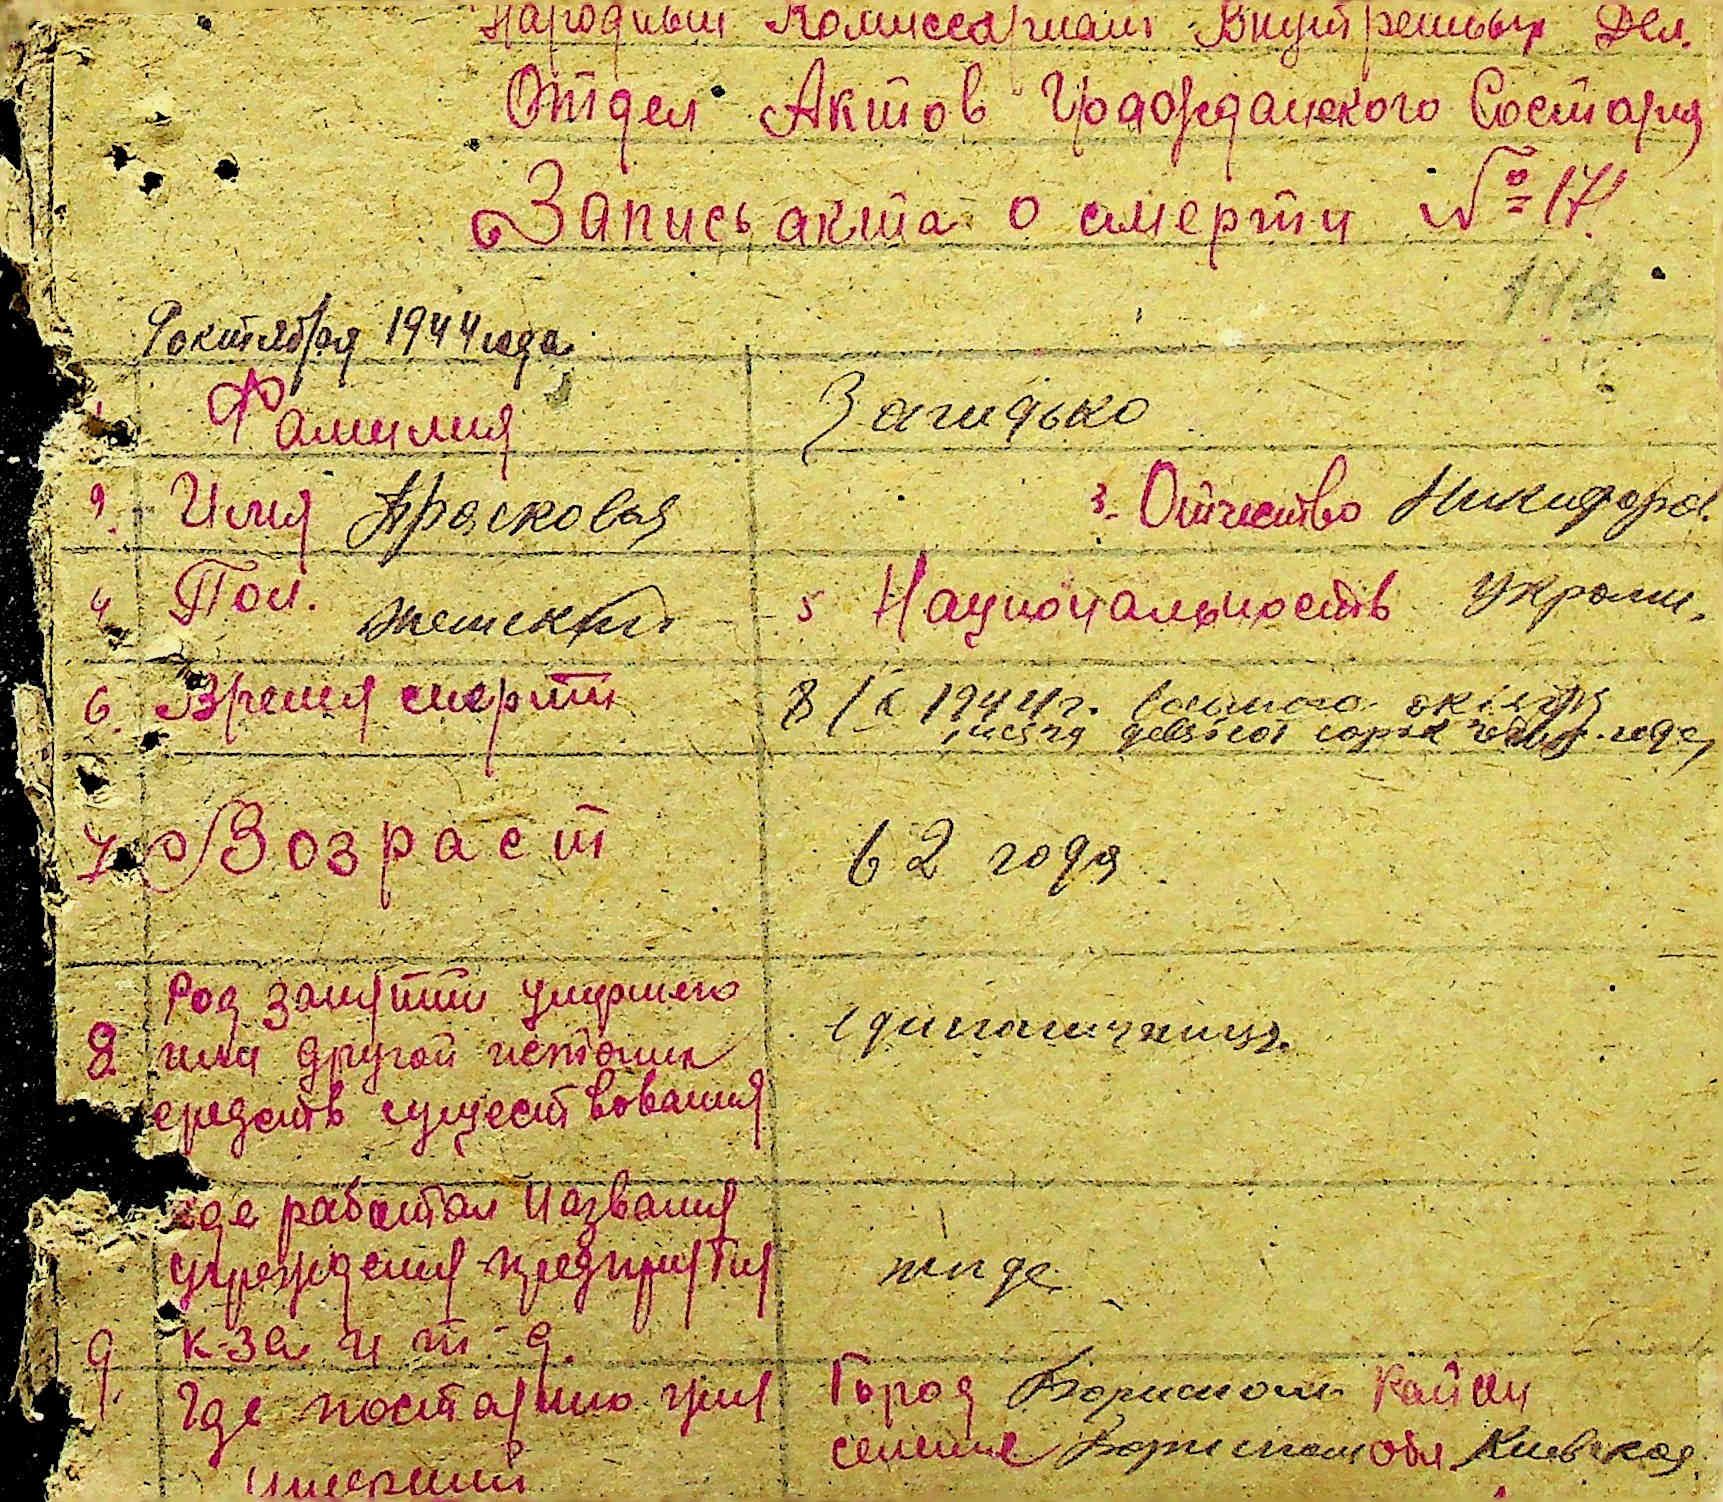 Народный Комиссариат Внутренных Дел.
Отдел Актов Гражданского Состояния
Запись акта о смерти № 17
9 октября 1944 года
1. Фамилия Загидько
2. Имя Прасковья 3. Отчество Никифоров.
4 Пол. женский 5 Национальность украин.
6. Время смерти 8/X 1944 г. восьмого октября
месяца девятсот сорок четвер. года
7 Возраст 62 года
Род занятий умершего
8 или другой источник единоличница.
средств существования
где работал названия
учреждения предприятия нигде
9. к-за и т-д.
Где постаянно жил Город Борисполь Район
умерший селение Борисполь обл. Киевская